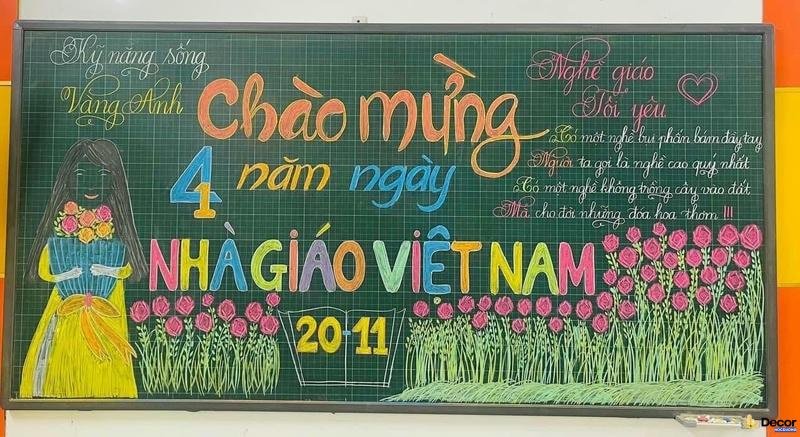 Kỹ năng sống
Vàng Anh
Chào mừng
41 năm ngày
NHÀ GIÁO VIỆT NAM
20-11
Nghề giáo
Tôi yêu
Có một nghề bụi phấn bám đầy tay
Người ta gọi là nghề cao quý nhất
Có một nghề không trồng cây vào đất
Mà cho đời những đóa hoa thơm !!!
Decor